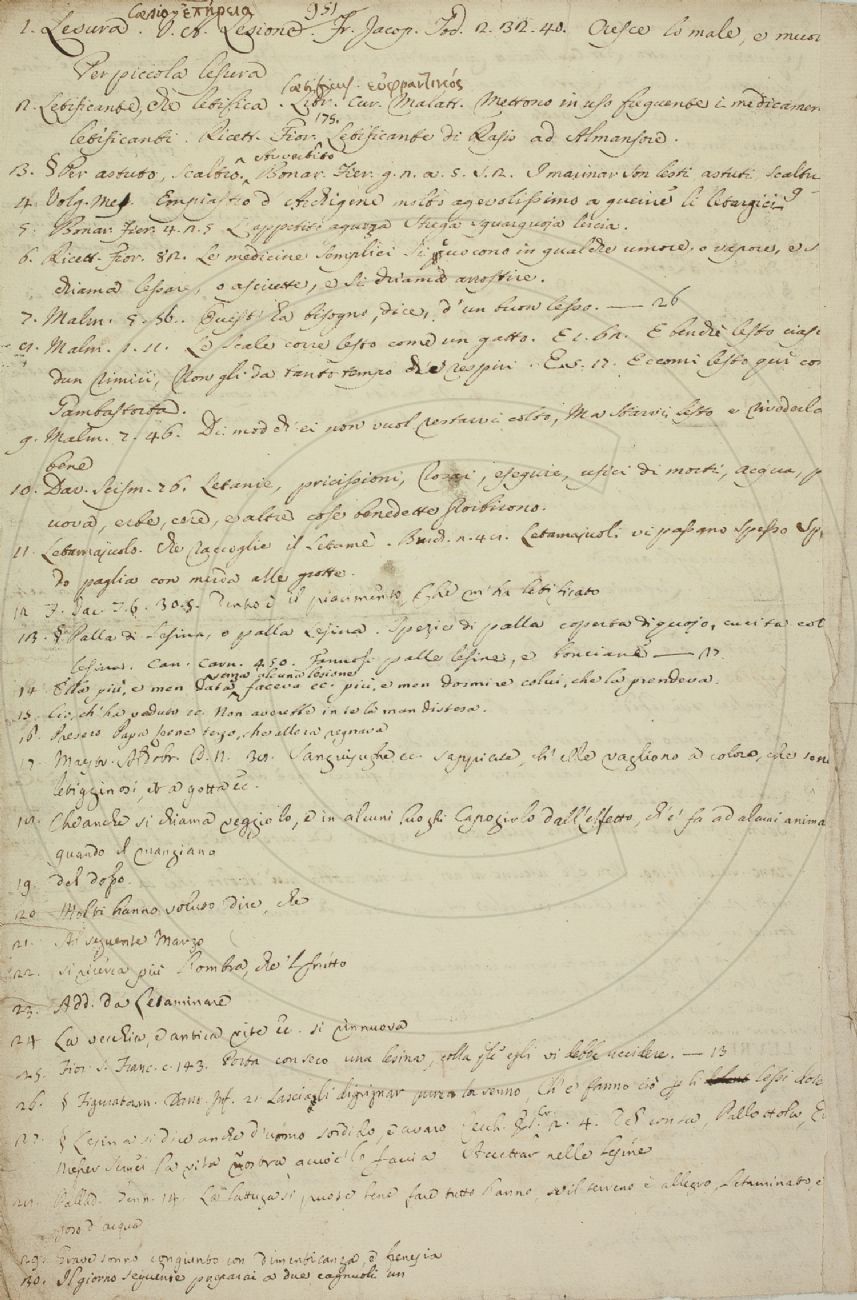 951
Laesio. ἐπήρεια
1. Lesura. V. A. Lesione. Fr. Jacop. Tod. 2. 32. 40. Cresce lo male, e muor
Per piccola lesura
Laetificus. εὐφραντικός
2. Letificante, che letifica. Libr. cur. Malatt. Mettono in uso frequente i medicamen
letificanti. Ricett. Fior. 175. Letificante di Rasis ad Almansore.
3. § Per astuto, scaltro, Avvertito. Bonar. Fier. g. n. a. 5. s. 2. I marinar son lesti astuti scaltri
4. Volg. Mes. Empiastro d' Archigene molto agevolissimo a guerire li letargici
5. Bonar. Fier. 4. 2. 5 L'appetiti aguzza Strega squarquoja lercia.
6. Ricett. Fior. 82. Le medicine semplici si cuocono in qualche umore, o vapore, e s
chiama lessare, o asciutte, e si chiama arrostire.
7. Malm. 5. 56. Quest' ha bisogno, dice, d'un buon lesso. — 26
Malm. 1. 11. Le scale corre lesto come un gatto. E 1. 62. E benchè lesto ciasc
dun rimiri, Non gli dà tanto tempo che respiri. E 5. 17. Eccomi lesto qui con
Gambastorta.
9. Malm. 2. 46. Di mod ch' ei non vuol restarvi colto, Ma starvi lesto e rivederla
bene
10. Dav. Scism. 26. Letanie, pricissioni, Rosai, esequie, ufici di morti, acqua, p
uova, erbe, cere, e altre cose benedette proibirono.
11. Letamajuolo. Che raccoglie il letame. Letamajuoli vi passano spesso
do paglia con merda alle grotte.
12. F. Jac. T. 6. 30. 8. Dentro è il piacimento, Che m' ha letificato
13. § Palla di Lesina, o palla lesina. Spezie di palla coperta di quojo, cucita col
lesina. Can. Carn. 450. palle lesine, e bonciane — 17.
14. Età più, e men data, senza alcuna lesione faceva ec. più, e men dormire colui, che la prendeva.
15. Lei, ch' ha veduto ec. Non averebbe in te la man distesa.
16. Presero Papa terzo, che allora regnava
17. Maestr. Aldobr. P. N. 30. Sanguisughe ec. sappiate, ch' elle vagliono a coloro, che sono
letigginosi, e a gotta ec.
18. Che anche si chiama veggiolo, e in alcuni luoghi Capogirlo dall'effetto, ch' e' fa ad alcuni anima
quando il mangiano
19. del dosso.
20. Molti hanno voluto dire, che
21. Al seguente Marzo
22. si ricerca più l'ombra, che 'l frutto
23. Add. da Letaminare
24. La vecchia, e antica vite ec. si rinnuova
25. Fior. S. Franc. c. 143. Porta con seco una lesina, colla qle egli vi debbe uccidere. — 13
26. § Figuratam. Dant. Inf. 21. Lasciagli digrignar pure a lor senno, Ch' e' fanno ciò per li lessi dolenti
27. § Lesina si dice anche d'uomo sordido, e avaro. Cecch. 2. 4.
la vita nostra acciò la faccia Accettar nelle lesine
28. Pallad. Genn. 14. La lattuga si puote bene fare tutto l'anno, se il terreno è allegro, letaminato, e
poso d'acqua
29. Grave sonno congiunto con dimenticanza, e frenesia
30. Il giorno seguente preparai a due cagnuoli un